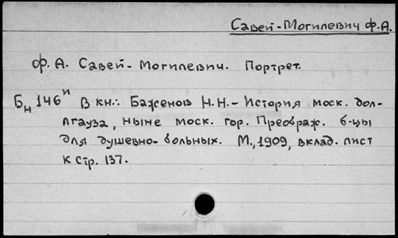 Савей-Могилевич Ф.А.
Ф. А. Савей-Могилевич. Портрет.
Бн 146и В кн.: Баженов Н.Н. - История моск. дол-
лгауза, ныне моск. гор. Преображ. б-цы
для душевно-больных. М., 1909, вклад. лист
к стр. 137.